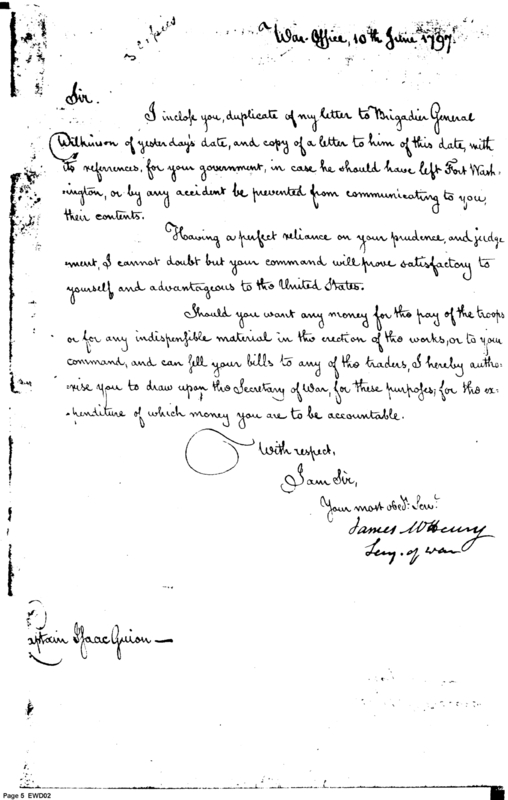 War-Office, 10th June 1797.
Sir.
I inclose you, duplicate of my letter to Brigadier General
Wilkinson of yesterday's date, and copy of a letter to him of this date, with
its references, for your government, in case he should have left Fort Wash-
-ington, or by any accident be prevented from communicating to you,
their contents.
Having a perfect reliance on your prudence, and judge
-ment, I cannot doubt but your command will prove satisfactory to
yourself and advantageous to the United States.
Should you want any money for the pay of the troops
or for any indispensible material in the erection of the works, or to your
command, and can sell your bills to any of the traders, I hereby autho-
-rise you to draw upon the Secretary of War, for these purposes; for the ex-
-penditure of which money you are to be accountable.
With respect,
I am Sir,
Your most obedt. Servt.
James McHenry
Secy. of war
Captain Isaac Guion —
Page 5 EWD02